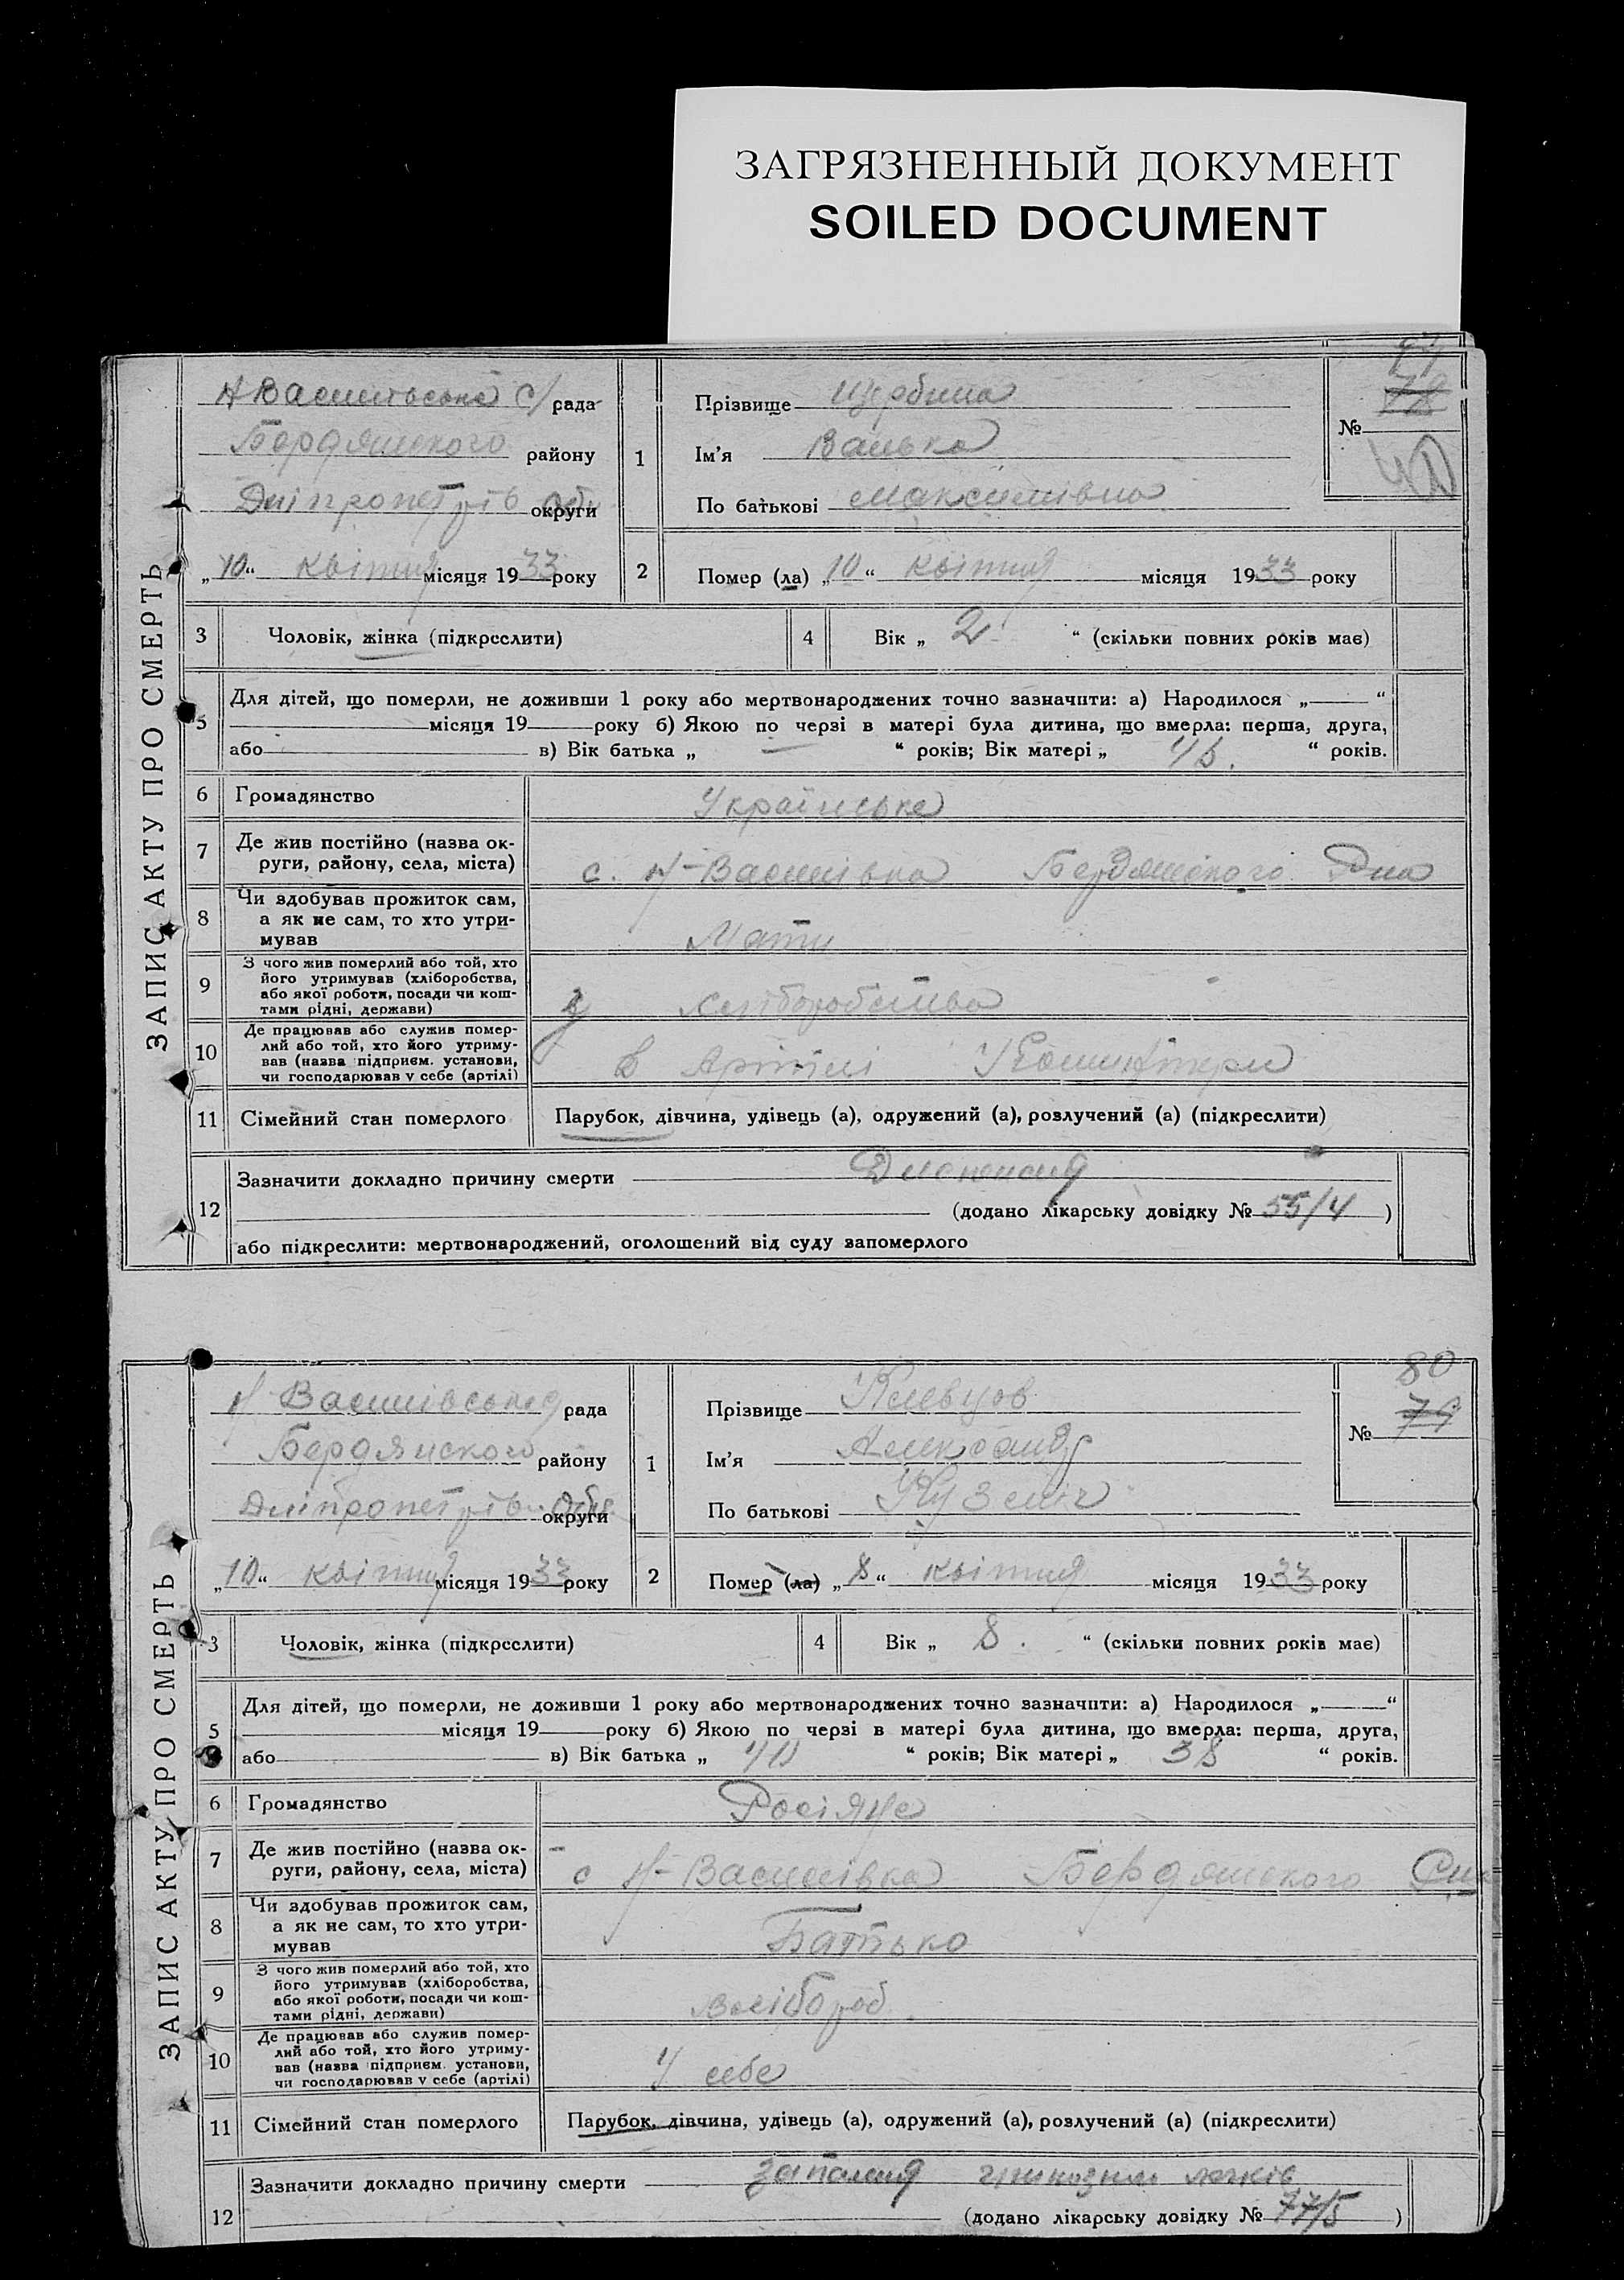 ЗАГРЯЗНЕННЫЙ ДОКУМЕНТ
SOILED DOCUMENT
ЗАПИС АКТУ ПРО СМЕРТЬ
с/рада
Бердянського району
Дніпропетрів округи
„10“ квітня місяця 1933 року
1
Прізвище Щербина
Ім'я Ванька
По батькові Максимівна
№ 78
2
Помер (ла) „10“ квітня місяця 1933 року
3 Чоловік, жінка (підкреслити)
4 Вік „ 2 “ (скільки повних років має)
5
Для дітей, що померли, не доживши 1 року або мертвонароджених точно зазначити: а) Народилося „ “
місяця 19 року б) Якою по черзі в матері була дитина, що вмерла: перша, друга,
або в) Вік батька „ — “ років; Вік матері „ “ років.
6 Громадянство Українське
7 Де жив постійно (назва ок-
руги, району, села, міста) с. Н-Василівка Бердянського Дна
8 Чи здобував прожиток сам,
а як не сам, то хто утри-
мував Мати
9 З чого жив померлий або той, хто
його утримував (хліборобства,
або якої роботи, посади чи кош-
тами рідні, держави) хліборобства
10 Де працював або служив помер-
лий або той, хто його утриму-
вав (назва підприєм. установи,
чи господарював у себе (артілі) в Артілі
11 Сімейний стан померлого Парубок, дівчина, удівець (а), одружений (а), розлучений (а) (підкреслити)
12
Зазначити докладно причину смерти
(додано лікарську довідку № 55/4 )
або підкреслити: мертвонароджений, оголошений від суду запомерлого
ЗАПИС АКТУ ПРО СМЕРТЬ
Н-Василівська рада
Бердянского району
Дніпропетрів Обл округи
„10“ квітня місяця 1933 року
1
Прізвище Клевцов
Ім'я Александр
По батькові Кузміч
№ 80
79
2
Помер (ла) „8“ квітня місяця 1933 року
3 Чоловік, жінка (підкреслити)
4 Вік „ 8. “ (скільки повних років має)
5
Для дітей, що померли, не доживши 1 року або мертвонароджених точно зазначити: а) Народилося „ “
місяця 19 року б) Якою по черзі в матері була дитина, що вмерла: перша, друга,
або в) Вік батька „ 40 “ років; Вік матері „ 38 “ років.
6 Громадянство Росіяне
7 Де жив постійно (назва ок-
руги, району, села, міста) с Н-Василівка Бердянского
8 Чи здобував прожиток сам,
а як не сам, то хто утри-
мував Батько
9 З чого жив померлий або той, хто
його утримував (хліборобства,
або якої роботи, посади чи кош-
тами рідні, держави) хлібороб
10 Де працював або служив помер-
лий або той, хто його утриму-
вав (назва підприєм. установи,
чи господарював у себе (артілі) У себе
11 Сімейний стан померлого Парубок, дівчина, удівець (а), одружений (а), розлучений (а) (підкреслити)
12
Зазначити докладно причину смерти запаленя легків
(додано лікарську довідку № 77/5 )